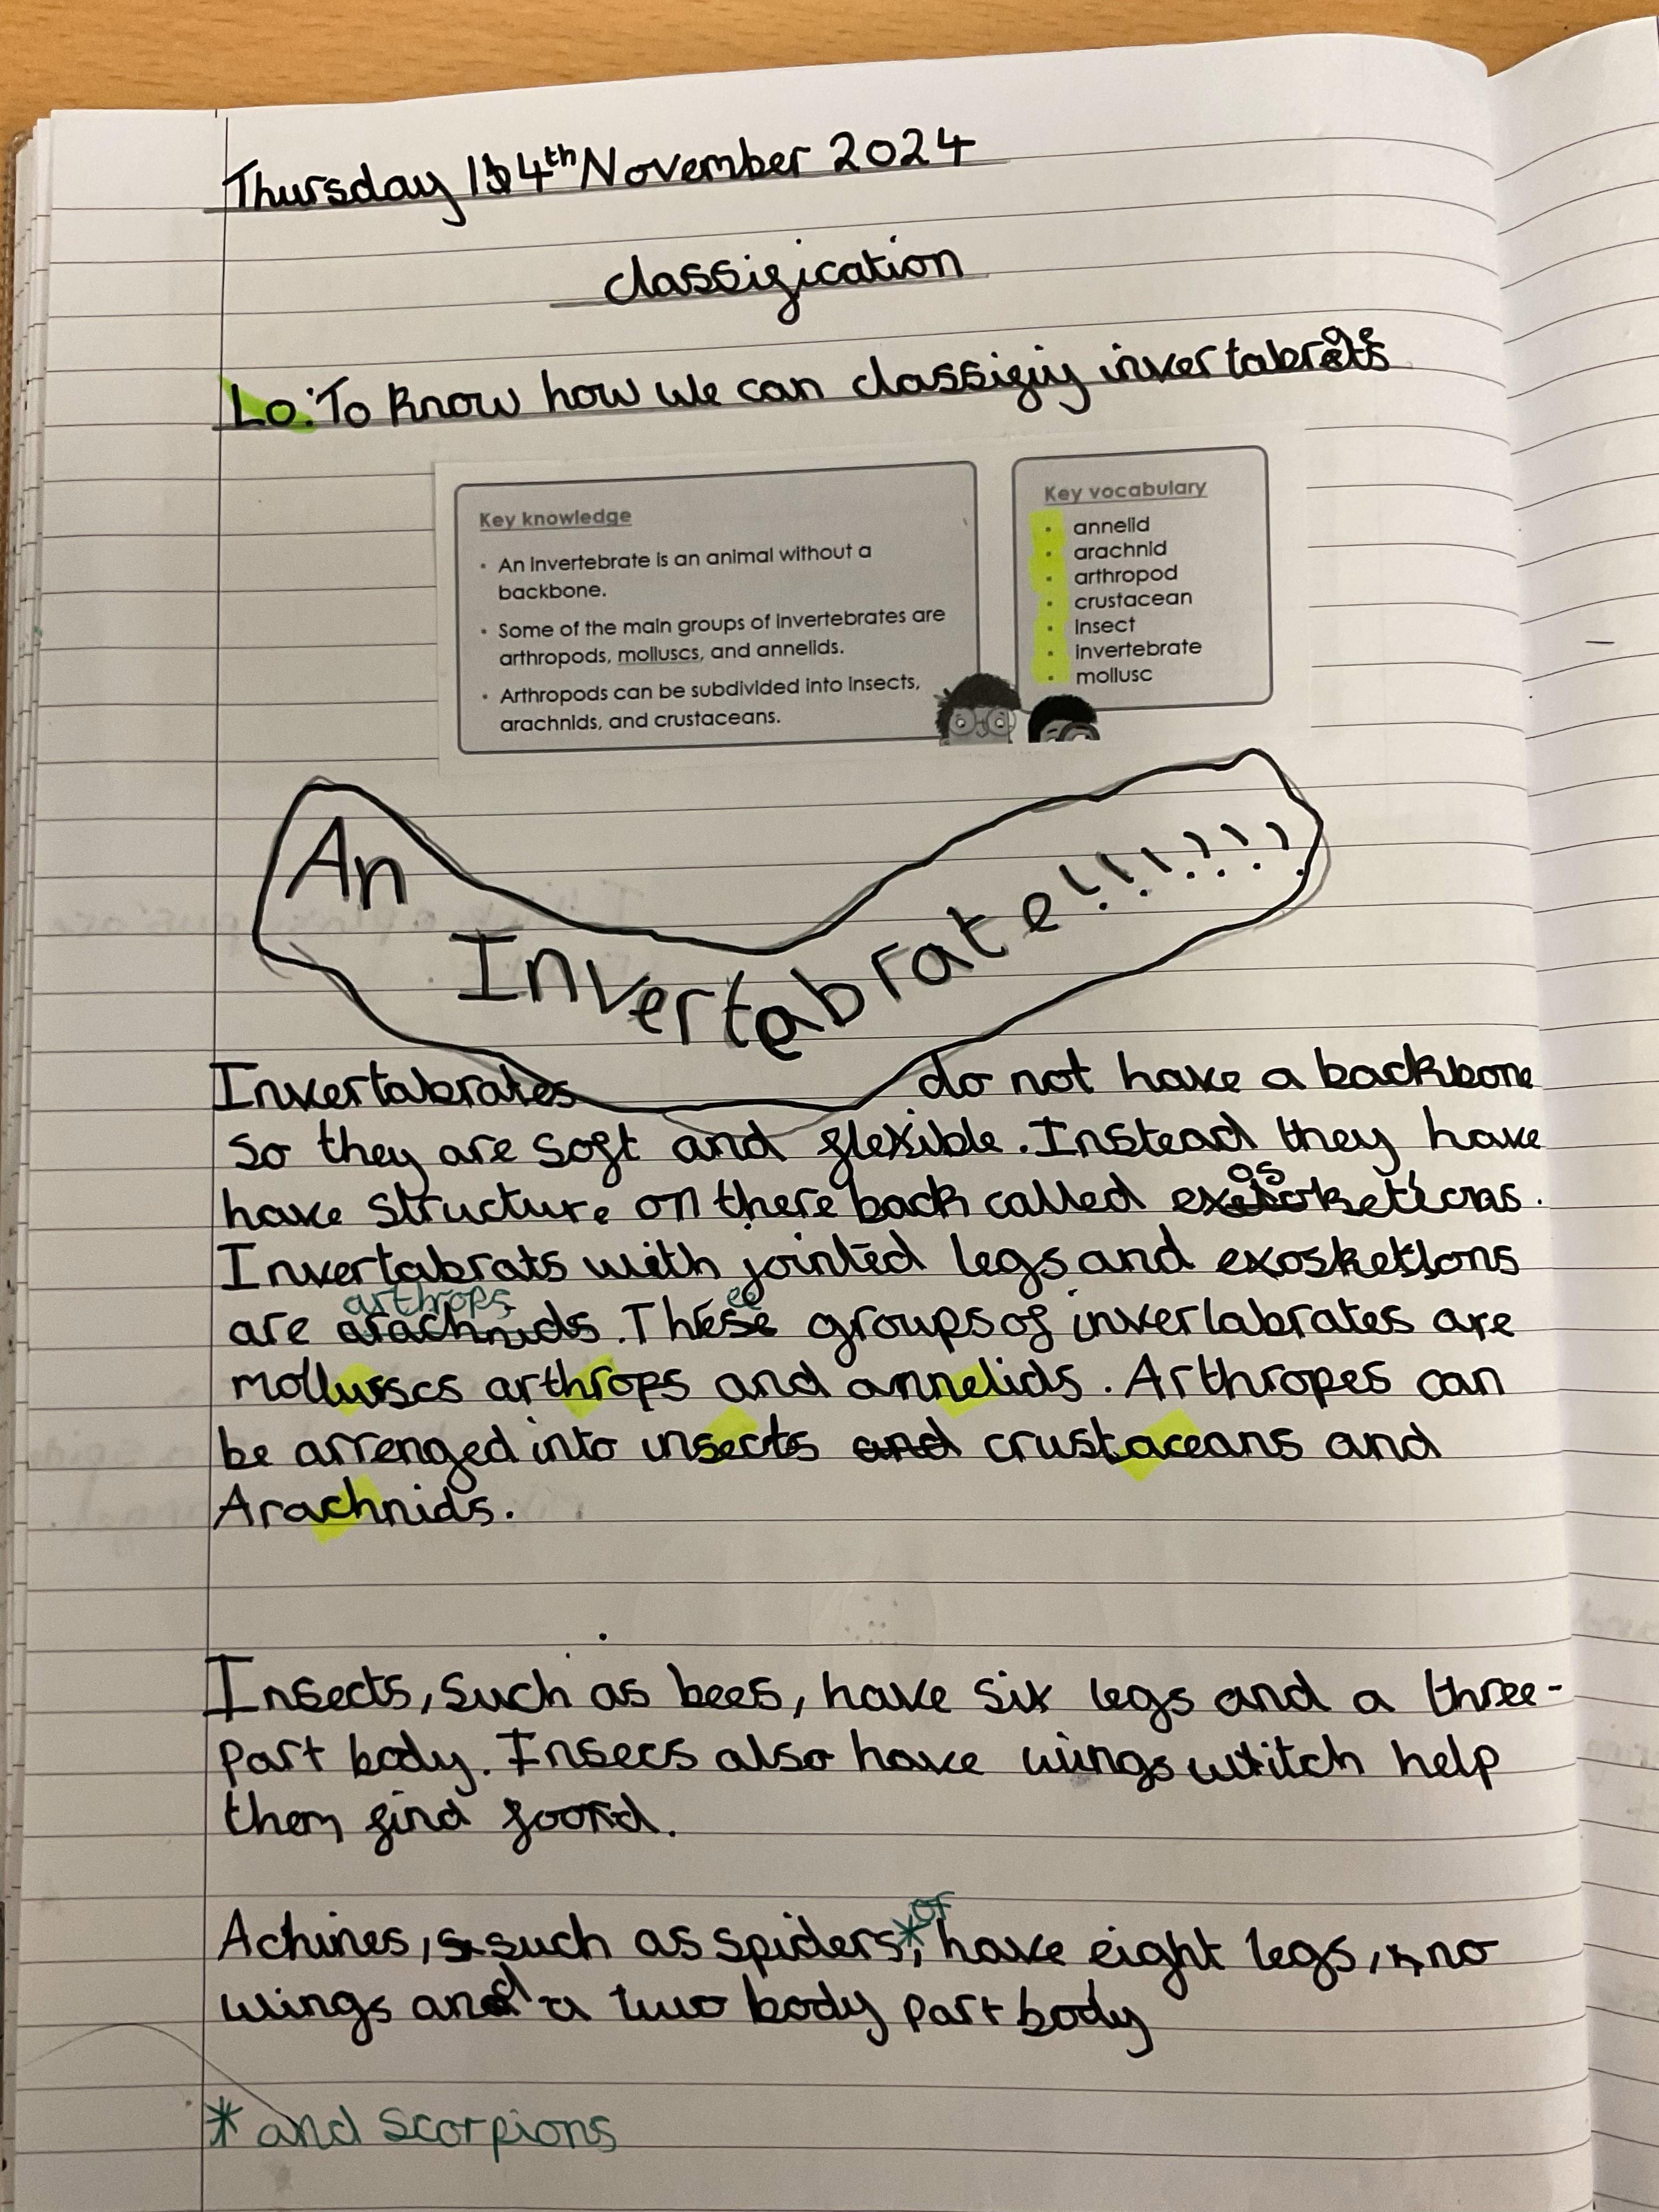 Thursday 14th November 2024
classification
Lo: To know how we can classifiy invertabrates
Key knowledge
• An invertebrate is an animal without a
backbone.
• Some of the main groups of invertebrates are
arthropods, molluscs, and annelids.
• Arthropods can be subdivided into insects,
arachnids, and crustaceans.
Key vocabulary
• annelid
• arachnid
• arthropod
• crustacean
• insect
• invertebrate
• mollusc
An Invertabrate!!!!!!!
Invertabrates do not have a backbone
so they are soft and flexible. Instead they have
have structure on there back called
Invertabrats with jointed legs and exosketlons
are arthrops
arachnids. These groups of invertabrates are
molluscs arthrops and annelids. Arthropes can
be arrenged into insects and crustaceans and
Arachnids.
Insects, such as bees, have six legs and a three-
part body. Insecs also have wings witch help
them find food.
Achines, such as spiders,* of have eight legs, no
wings and a two body part body
* and scorpions